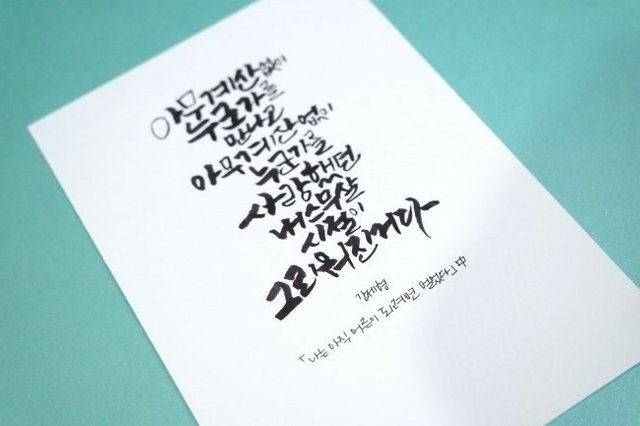 아무계산없이
누군가를
만나고
아무계산 없이
누군가를
사랑했던
내스무살
시절이
그리워진거다
강세형
「나는 아직 어른이 되려면 멀었다」中